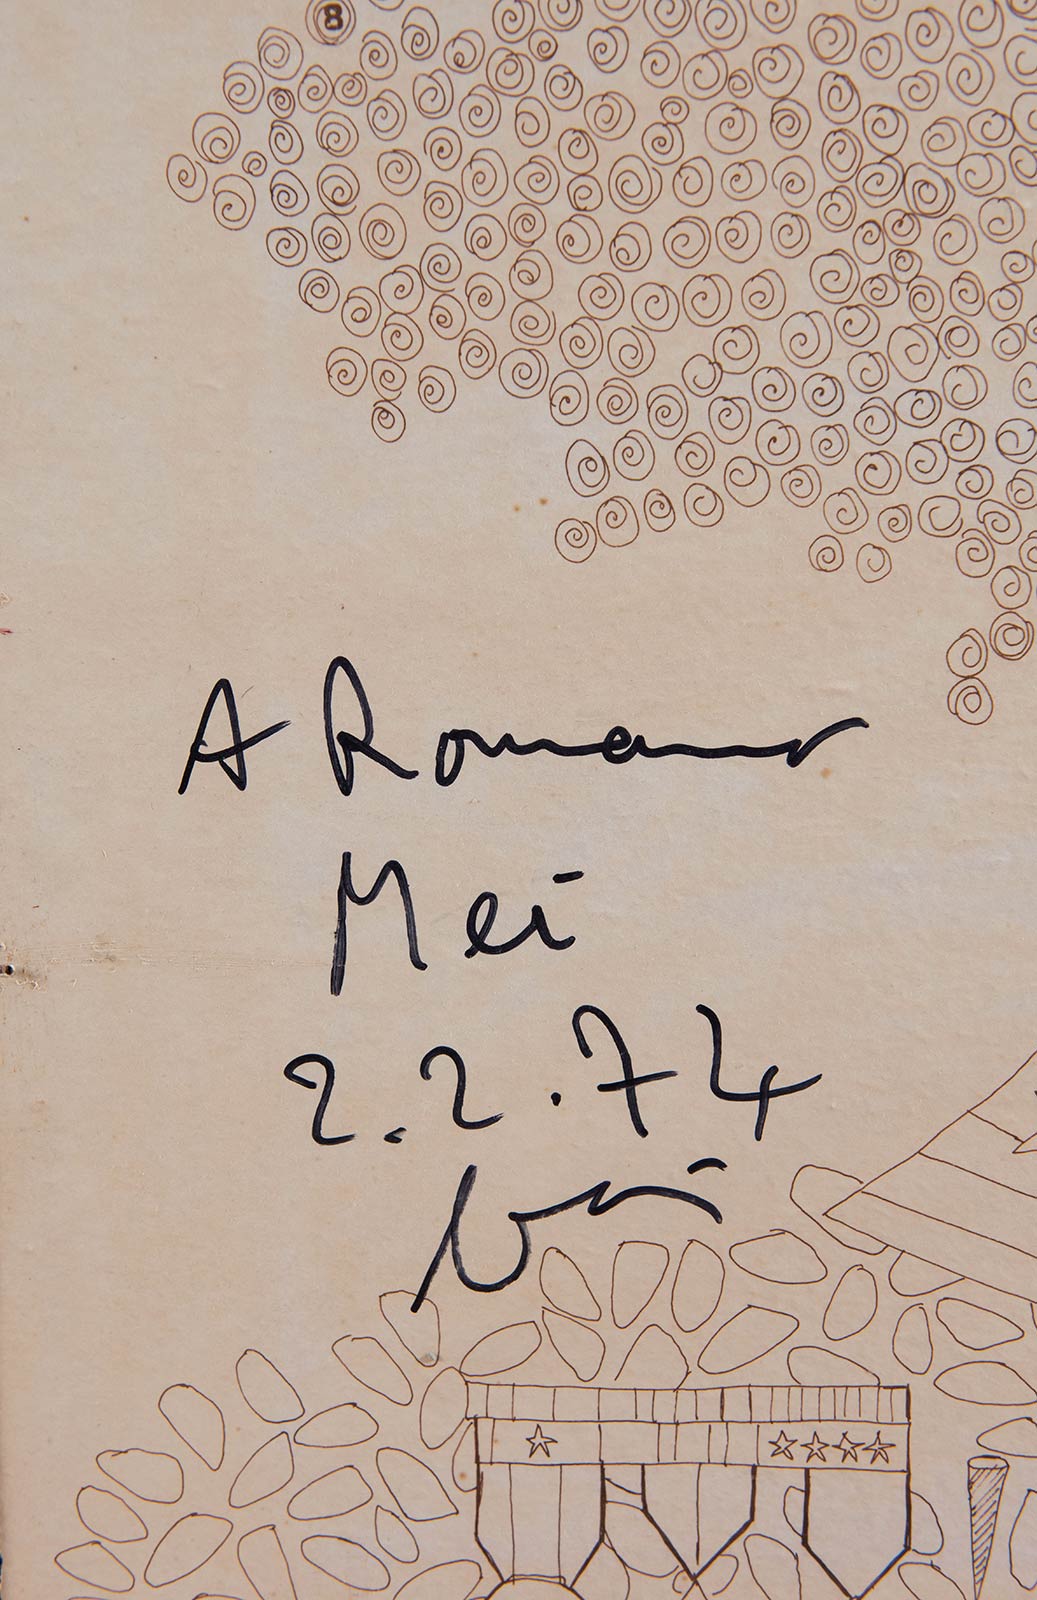 8
A Romano
Mei
2.2.74